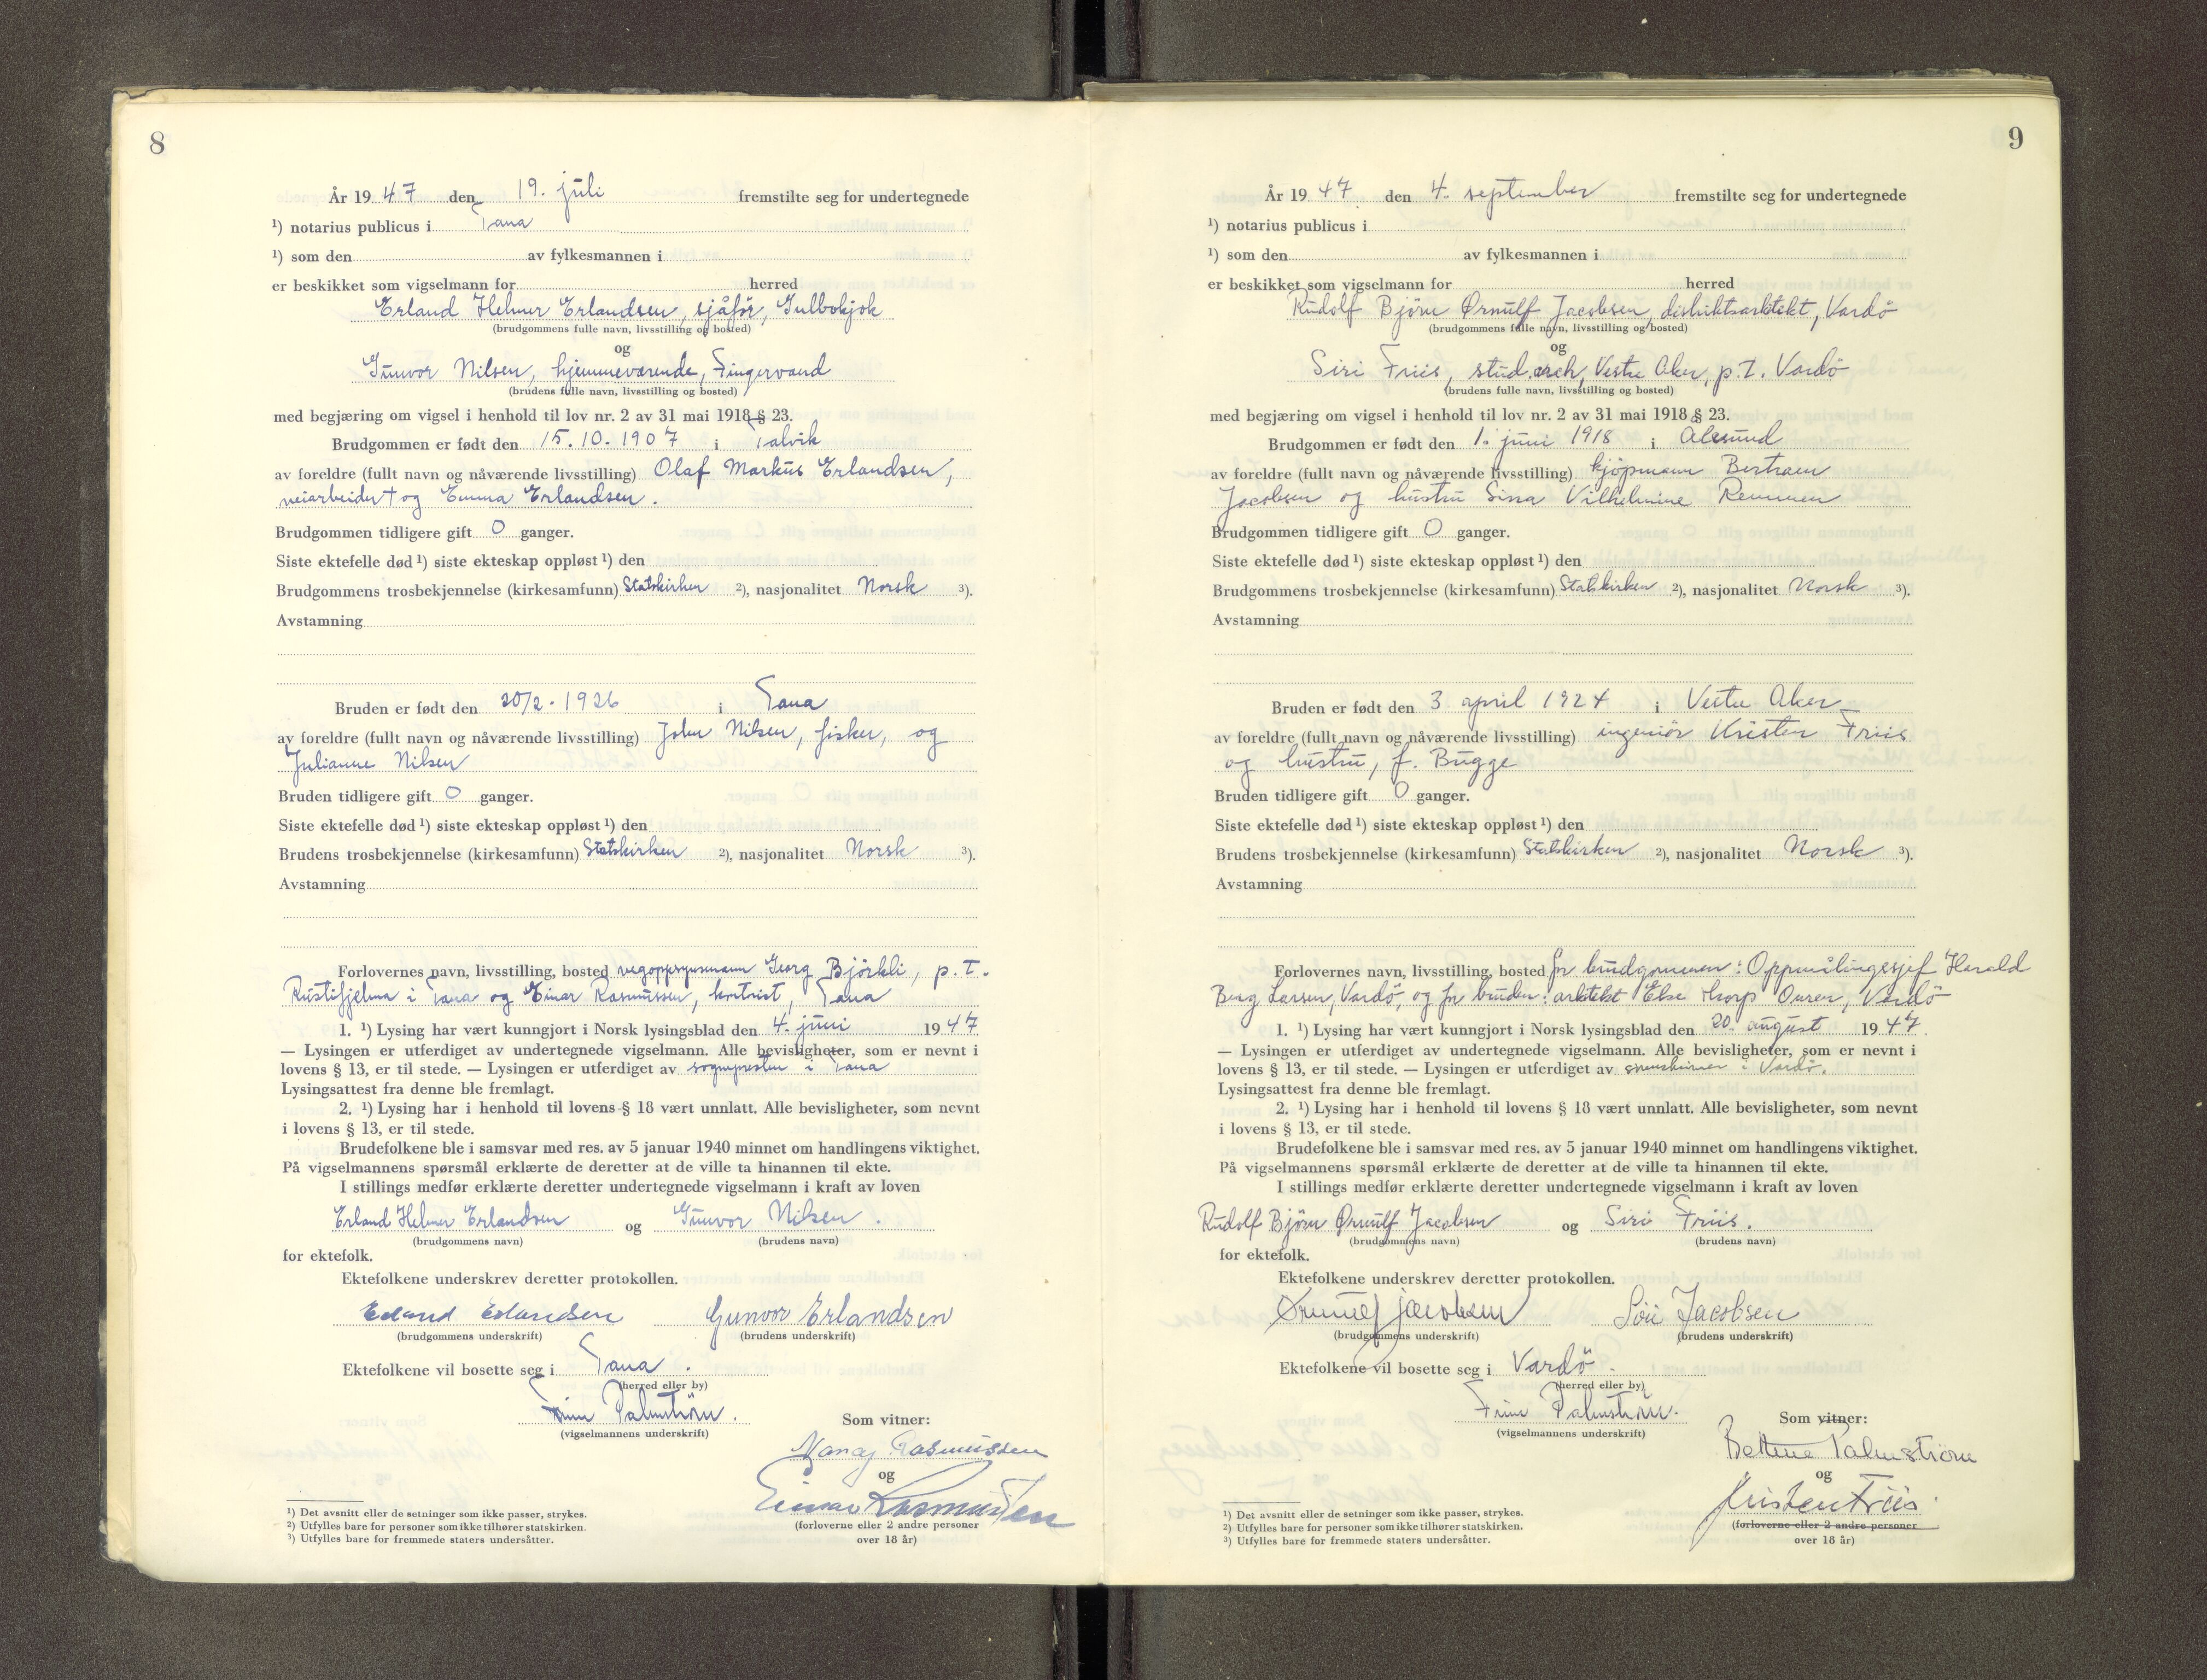 8
År 1947 den 19. juli fremstilte seg for undertegnede
¹) notarius publicus i Tana
¹) som den av fylkesmannen i
er beskikket som vigselmann for herred
Erland Helmer Erlandsen, sjåför, Gulbokjok
(brudgommens fulle navn, livsstilling og bosted)
og
Gunvor Nilsen, hjemmeværende, Fingervand
(brudens fulle navn, livsstilling og bosted)
med begjæring om vigsel i henhold til lov nr. 2 av 31 mai 1918 § 23.
Brudgommen er født den 15.10.1907 i Talvik
av foreldre (fullt navn og nåværende livsstilling) Olaf Markus Erlandsen,
veiarbeider † og Emma Erlandsen.
Brudgommen tidligere gift 0 ganger.
Siste ektefelle død ¹) siste ekteskap oppløst ¹) den
Brudgommens trosbekjennelse (kirkesamfunn) Statskirken ²), nasjonalitet Norsk ³).
Avstamning
Bruden er født den 20/2. 1926 i Tana
av foreldre (fullt navn og nåværende livsstilling) John Nilsen, fisker, og
Julianne Nilsen
Bruden tidligere gift 0 ganger.
Siste ektefelle død ¹) siste ekteskap oppløst ¹) den
Brudens trosbekjennelse (kirkesamfunn) Statskirken ²), nasjonalitet Norsk ³).
Avstamning
Forlovernes navn, livsstilling, bosted vegoppsynsmann Georg Björkli, p.t.
Rustifjelma i Tana og Einar Rasmussen, kontorist, Tana
1. ¹) Lysing har vært kunngjort i Norsk lysingsblad den 4. juni 1947
— Lysingen er utferdiget av undertegnede vigselmann. Alle bevisligheter, som er nevnt i
lovens § 13, er til stede. — Lysingen er utferdiget av sognepresten i Tana
Lysingsattest fra denne ble fremlagt.
2. ¹) Lysing har i henhold til lovens § 18 vært unnlatt. Alle bevisligheter, som nevnt
i lovens § 13, er til stede.
Brudefolkene ble i samsvar med res. av 5 januar 1940 minnet om handlingens viktighet.
På vigselmannens spørsmål erklærte de deretter at de ville ta hinannen til ekte.
I stillings medfør erklærte deretter undertegnede vigselmann i kraft av loven
Erland Helmer Erlandsen og Gunvor Nilsen.
(brudgommens navn) (brudens navn)
for ektefolk.
Ektefolkene underskrev deretter protokollen.
Erland Erlandsen Gunvor Erlandsen
(brudgommens underskrift) (brudens underskrift)
Ektefolkene vil bosette seg i Tana.
(herred eller by)
Finn Palmström.
(vigselmannens underskrift)
Som vitner:
Rasmussen
og
Einar Rasmussen
(forloverne eller 2 andre personer
over 18 år)
¹) Det avsnitt eller de setninger som ikke passer, strykes.
²) Utfylles bare for personer som ikke tilhører statskirken.
³) Utfylles bare for fremmede staters undersåtter.
9
År 1947 den 4. september fremstilte seg for undertegnede
¹) notarius publicus i
¹) som den av fylkesmannen i
er beskikket som vigselmann for herred
Rudolf Björn Ørnulf Jacobsen, distriktsarkitekt, Vardö
(brudgommens fulle navn, livsstilling og bosted)
og
Siri Friis, stud.arch, Vestre Aker, p.t. Vardö
(brudens fulle navn, livsstilling og bosted)
med begjæring om vigsel i henhold til lov nr. 2 av 31 mai 1918 § 23.
Brudgommen er født den 1. juni 1918 i Ålesund
av foreldre (fullt navn og nåværende livsstilling) kjöpmann Bertram
Jacobsen og hustru Sina Vilhelmine Remmen
Brudgommen tidligere gift 0 ganger.
Siste ektefelle død ¹) siste ekteskap oppløst ¹) den
Brudgommens trosbekjennelse (kirkesamfunn) Statskirken ²), nasjonalitet Norsk ³).
Avstamning
Bruden er født den 3 april 1924 i Vestre Aker
av foreldre (fullt navn og nåværende livsstilling) ingeniör Kristen Friis
og hustru, f. Bugge
Bruden tidligere gift 0 ganger.
Siste ektefelle død ¹) siste ekteskap oppløst ¹) den
Brudens trosbekjennelse (kirkesamfunn) Statskirken ²), nasjonalitet Norsk ³).
Avstamning
Forlovernes navn, livsstilling, bosted for brudgommen: Oppmålingssjef Harald
Berg Larsen, Vardö, og for bruden: arkitekt Else Thorp Ouren, Vardö
1. ¹) Lysing har vært kunngjort i Norsk lysingsblad den 20. august 1947.
— Lysingen er utferdiget av undertegnede vigselmann. Alle bevisligheter, som er nevnt i
lovens § 13, er til stede. — Lysingen er utferdiget av i Vardö.
Lysingsattest fra denne ble fremlagt.
2. ¹) Lysing har i henhold til lovens § 18 vært unnlatt. Alle bevisligheter, som nevnt
i lovens § 13, er til stede.
Brudefolkene ble i samsvar med res. av 5 januar 1940 minnet om handlingens viktighet.
På vigselmannens spørsmål erklærte de deretter at de ville ta hinannen til ekte.
I stillings medfør erklærte deretter undertegnede vigselmann i kraft av loven
Rudolf Björn Ørnulf Jacobsen og Siri Friis.
(brudgommens navn) (brudens navn)
for ektefolk.
Ektefolkene underskrev deretter protokollen.
Ørnulf Jacobsen Siri Jacobsen
(brudgommens underskrift) (brudens underskrift)
Ektefolkene vil bosette seg i Vardö.
(herred eller by)
Finn Palmström.
(vigselmannens underskrift)
Som vitner:
Bettina Palmström
og
Kristen Friis.
(forloverne eller 2 andre personer
over 18 år)
¹) Det avsnitt eller de setninger som ikke passer, strykes.
²) Utfylles bare for personer som ikke tilhører statskirken.
³) Utfylles bare for fremmede staters undersåtter.